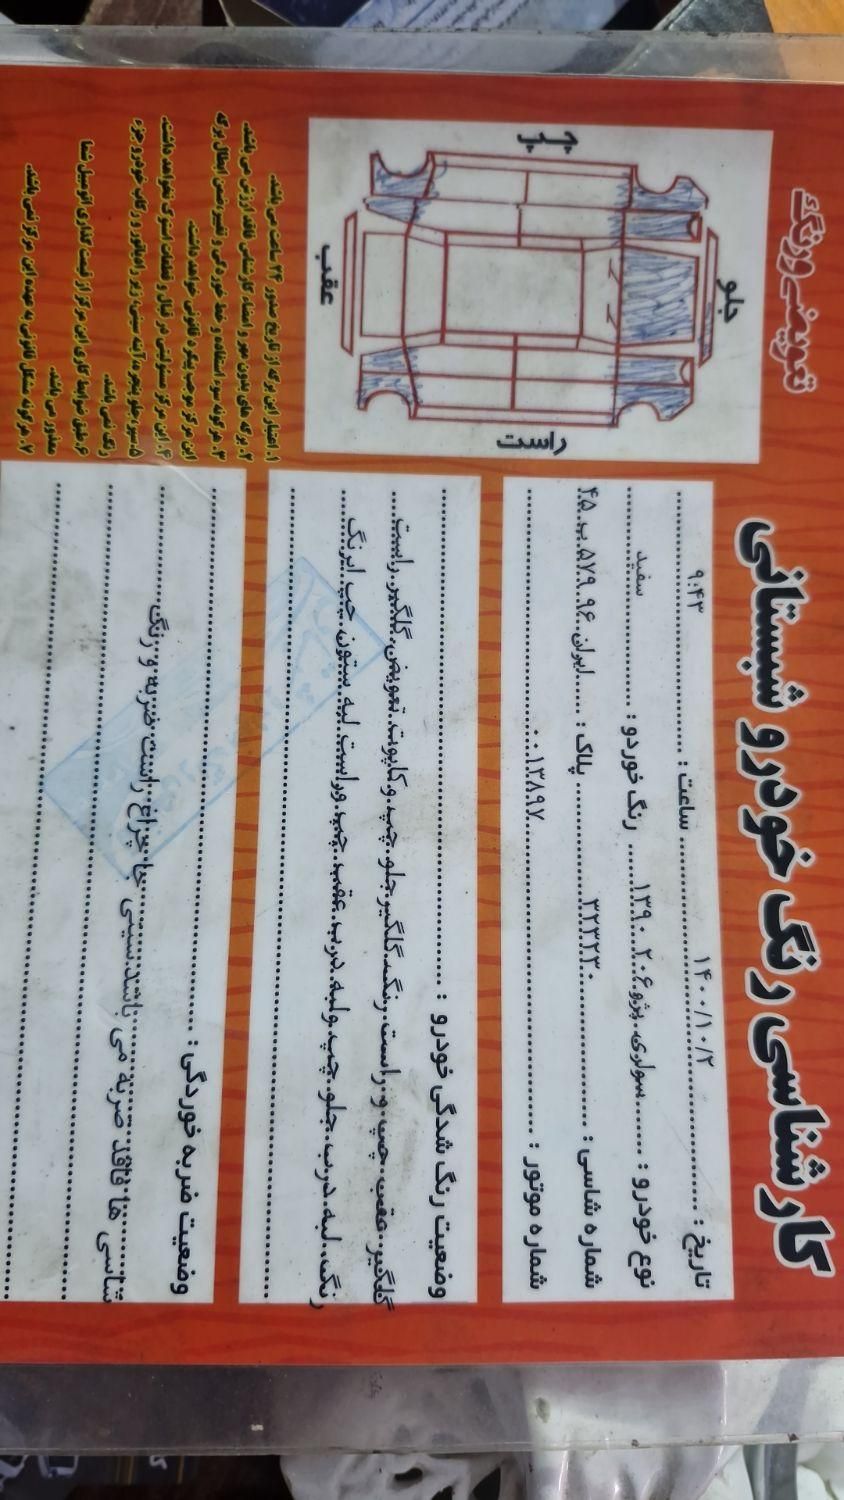 کارشناسی رنگ خودرو شبستانی
تاریخ : ۱۴۰۰/۱۰/۲ ساعت : ۹:۴۳
نوع خودرو : سواری پژو ۲۰۶ ۱۳۹۰ رنگ خوردو : سفید
شماره شاسی : ۳۲۳۲۳۰ پلاک : ایران ۹۶ ۵۷۹ ب ۴۵
شماره موتور : ۰۰۱۳۸۹۷
وضعیت رنگ شدگی خودرو :
گلگیر عقب چپ و راست رنگ گلگیر جلو چپ و کاپوت تعویض گلگیر راست
رنگ لبه درب جلو چپ ولبه درب عقب چپ وراست لبه ستون چپ ابرنگ
وضعیت ضربه خوردگی :
شاسی ها فاقد ضربه می باشد سینی جا چراغ راست ضربه و رنگ
تعویض رنگ
جلو
عقب
راست
۱. اعتبار این برگه از تاریخ صدور ۲۴ ساعت می باشد.
۲. برگه های بدون مهر و امضاء کارشناس فاقد ارزش می باشد.
۳. هرگونه سوء استفاده و خط خوردگی و تغییر ضمن ابطال برگه
این مرکز موجب پیگرد قانونی خواهد داشت.
۴. این مرکز مسئولیتی در قبال و قطعات استوک نخواهد داشت.
رنگ نمی باشد.
معذور می باشد.
۷. هرگونه مشکل قانونی به عهده این مرکز نمی باشد.